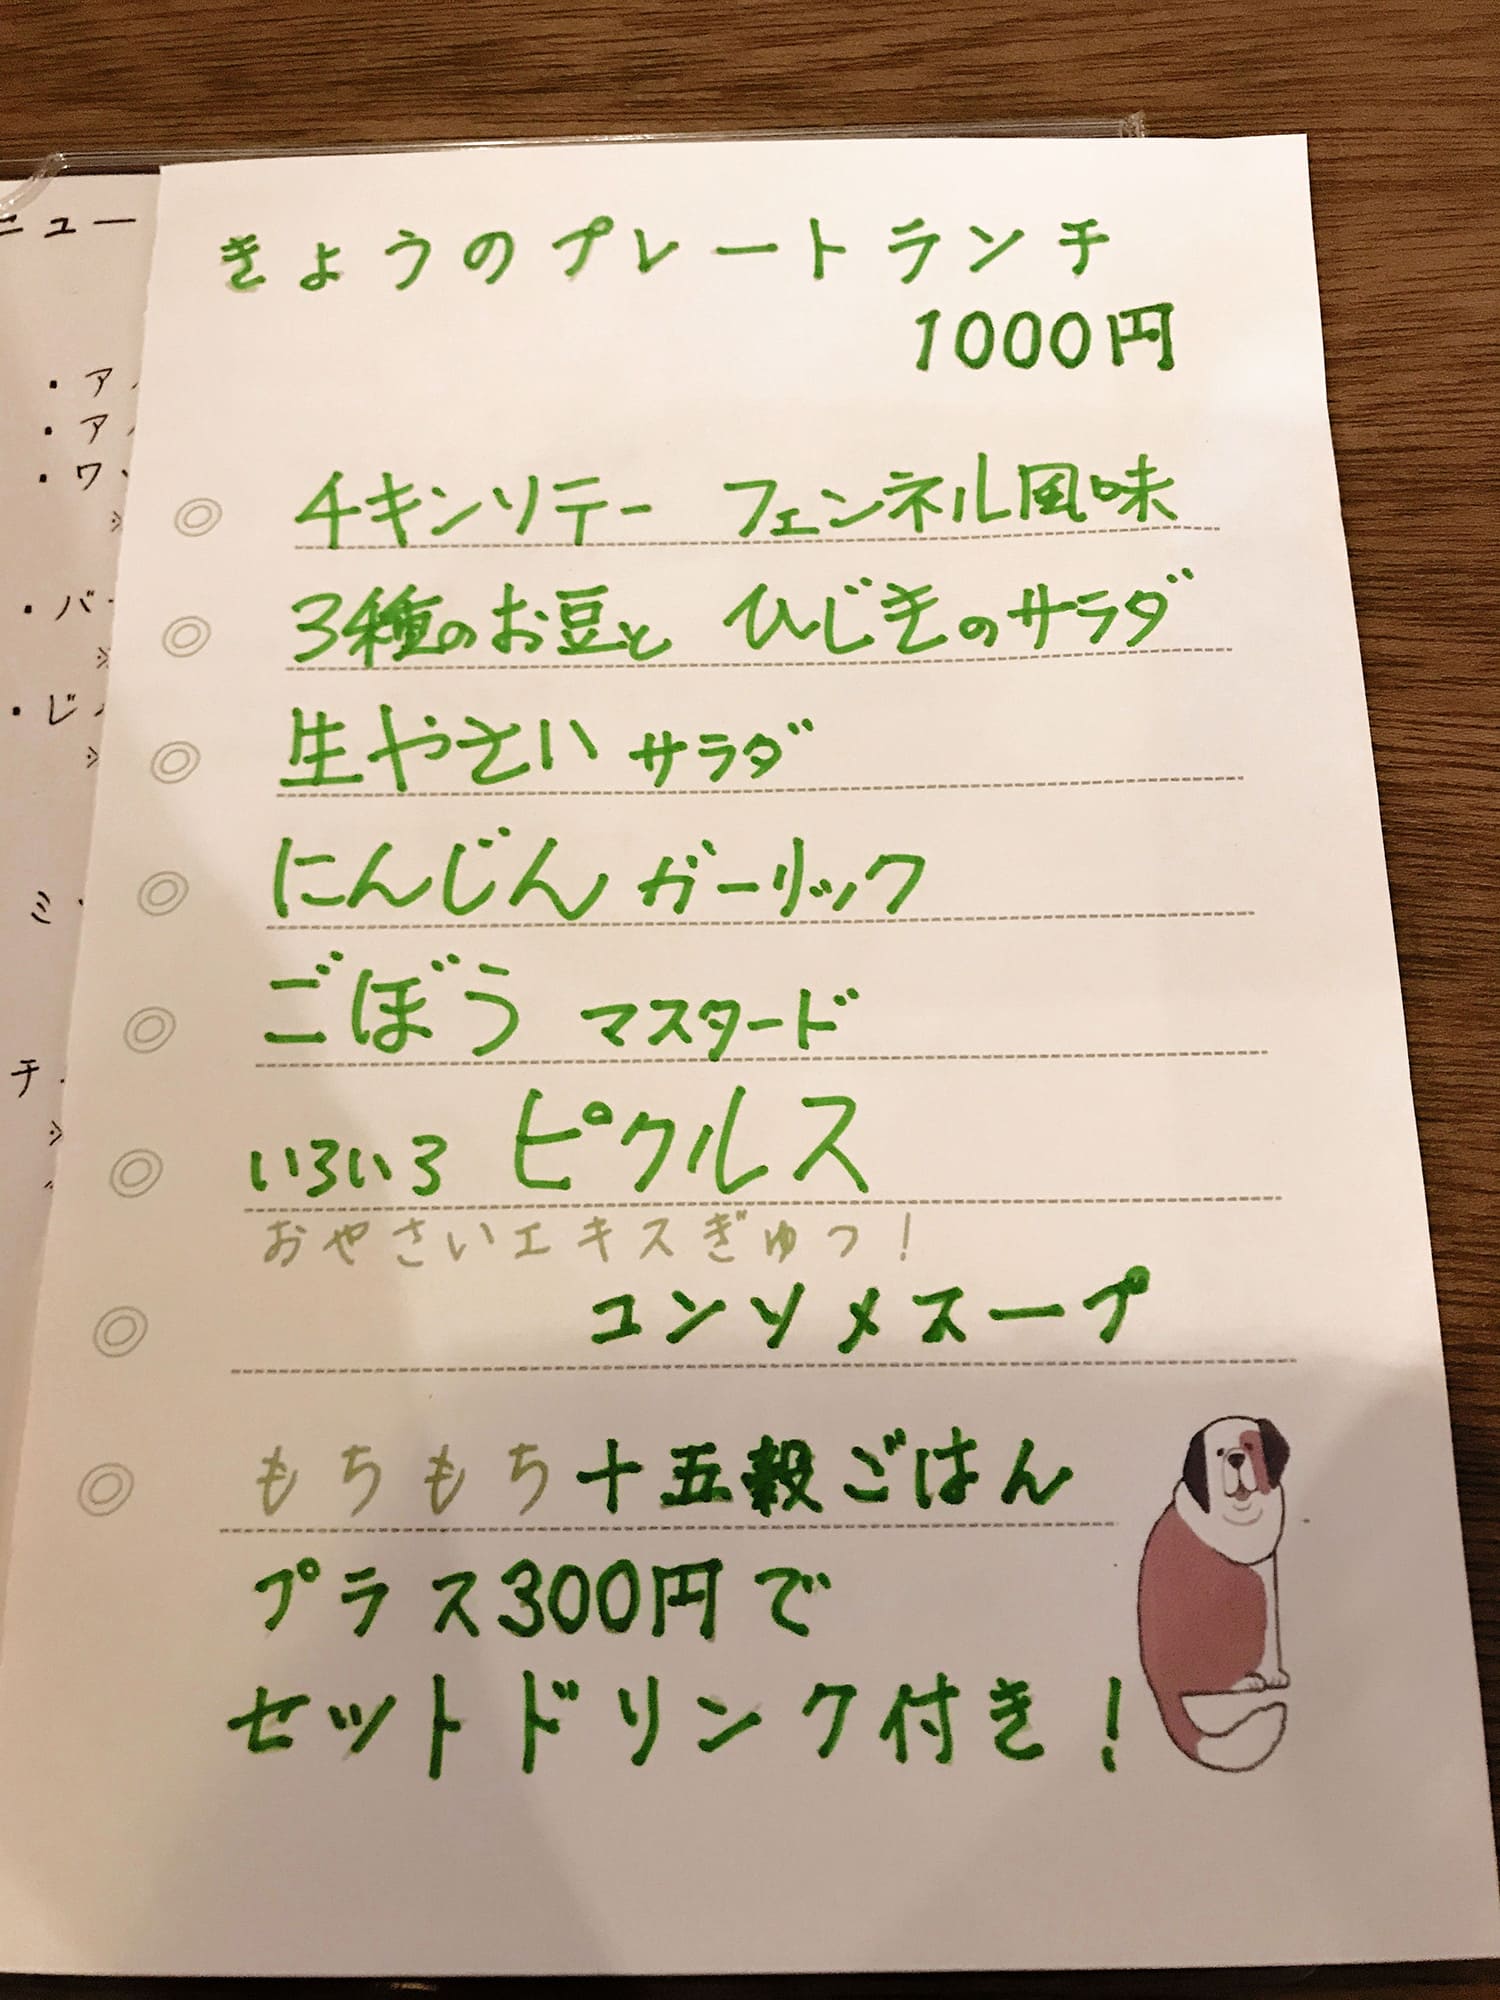 きょうのプレートランチ
1000円
チキンソテー フェンネル風味
3種のお豆と ひじきのサラダ
生やさい サラダ
にんじん ガーリック
ごぼう マスタード
いろいろ ピクルス
おやさいエキスぎゅっ！
コンソメスープ
もちもち十五穀ごはん
プラス300円で
セットドリンク付き！
ニュー
・ア
・ア
・ワ
※
・バ
※
・じ
※
ミ
チ
※